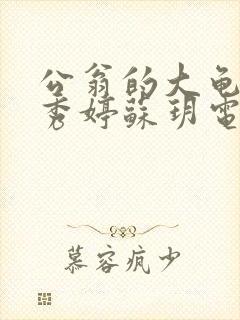 公翁的大龟
秀婷蘇玥電
慕容疯少